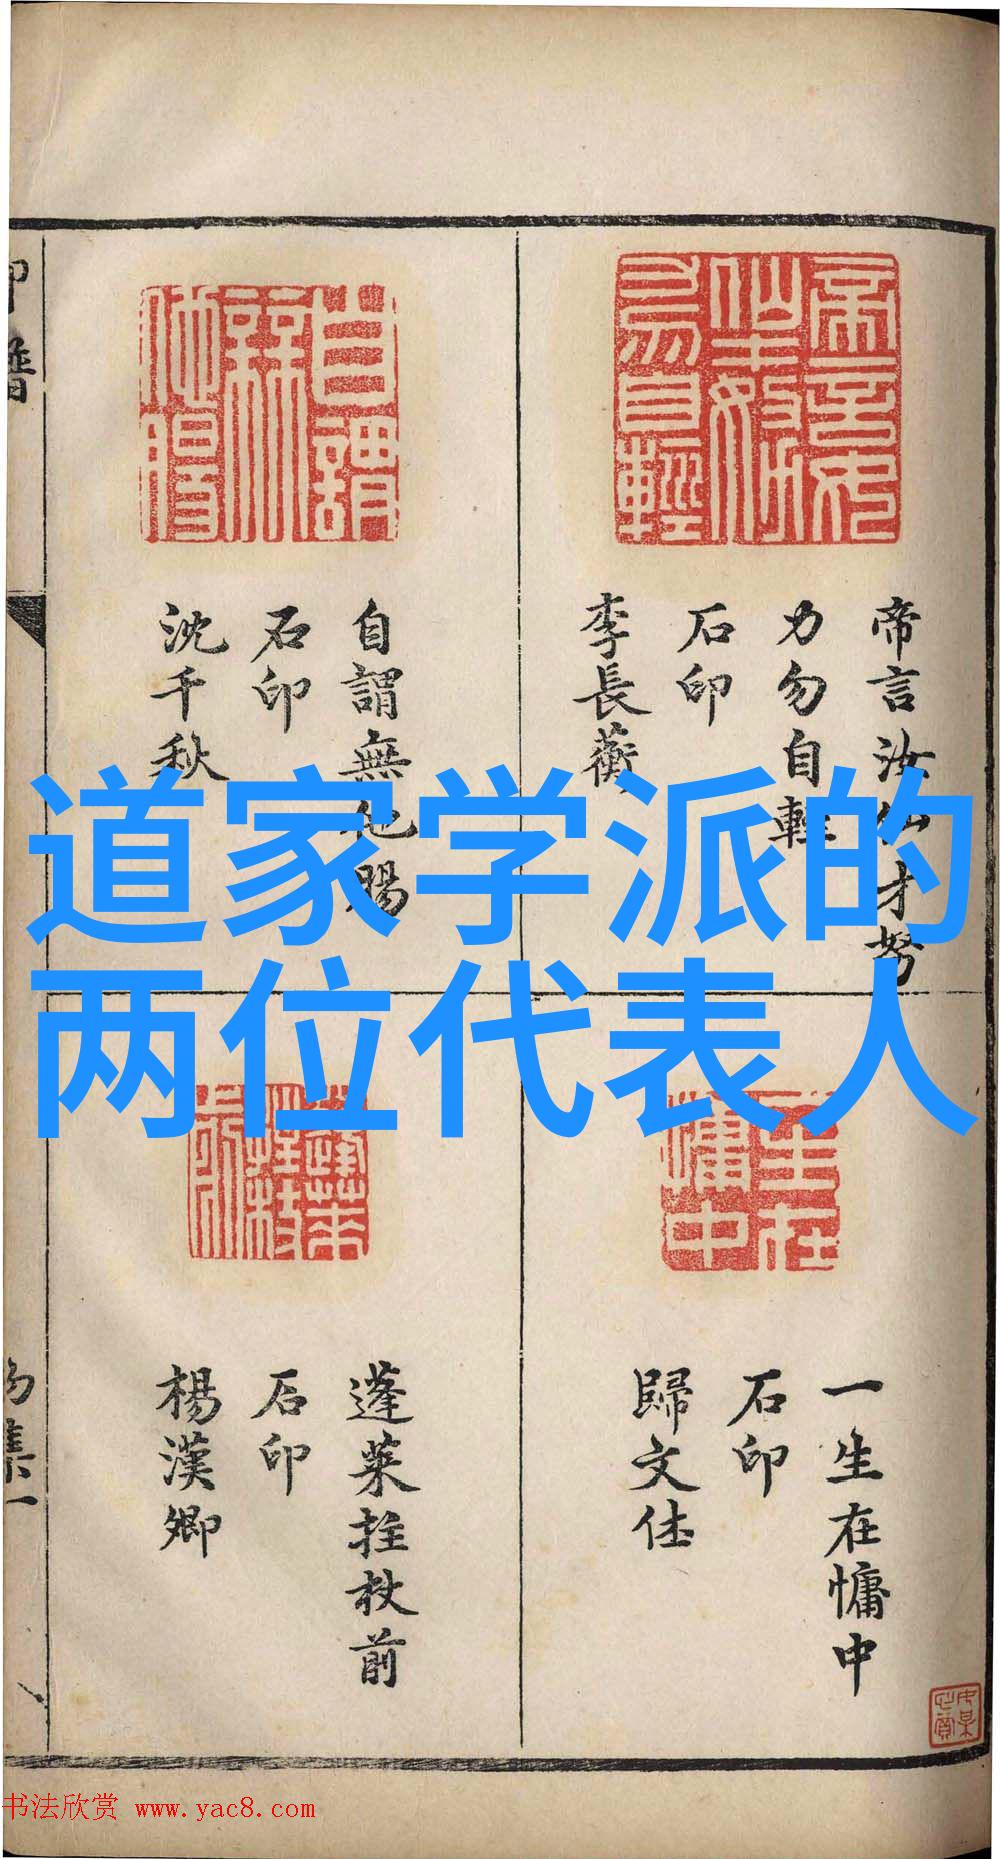 道家学派的
两位代表人
帝言汝仙才努
力勿自輕
石印
李長蘅
自謂無他腸
石印
沈千秋
一生在慵中
石印
歸文休
蓬萊拄杖前
石印
楊漢卿
印譜
初集一
书法欣赏 www.yac8.com